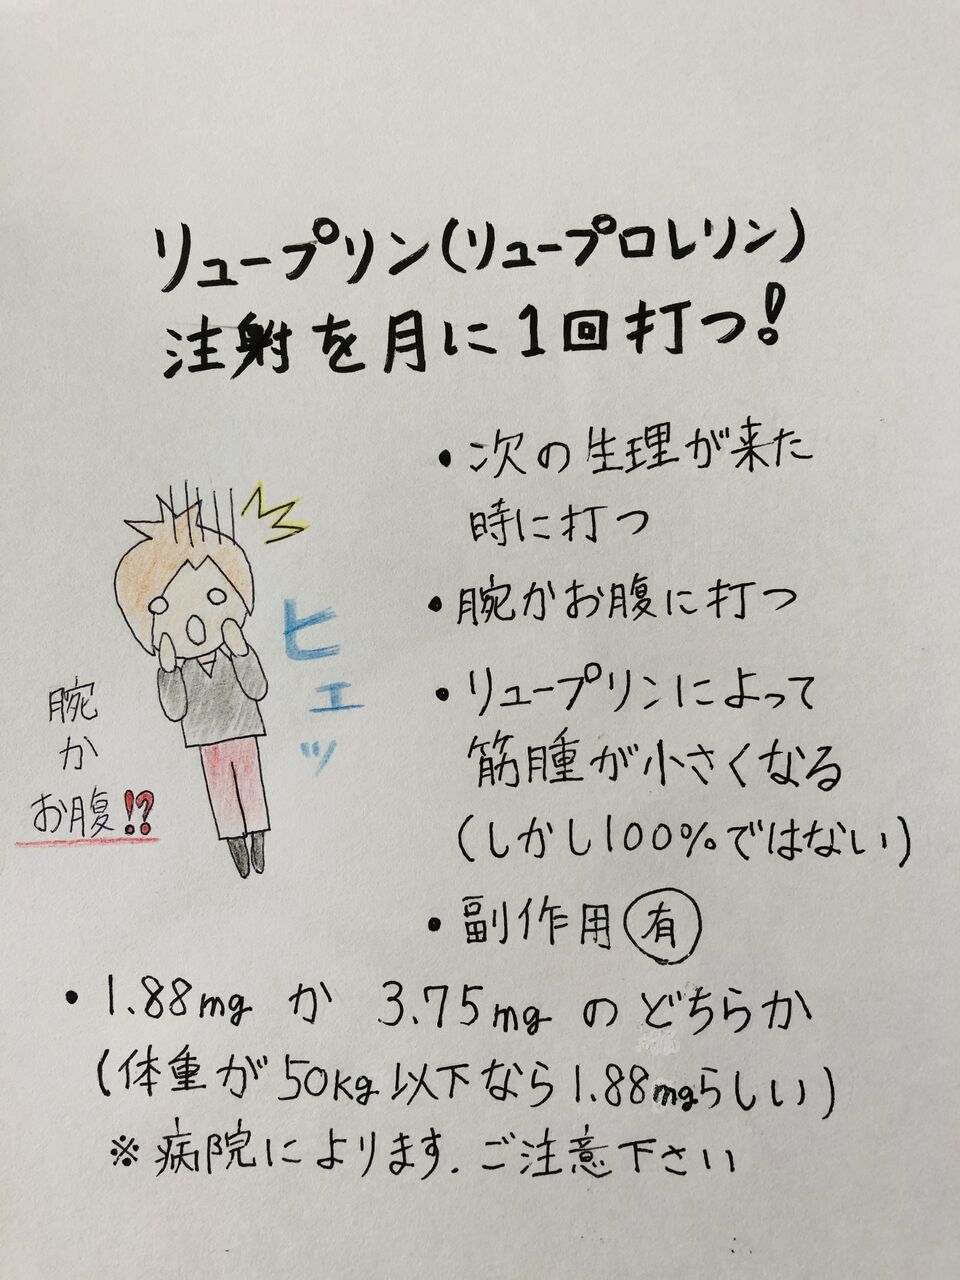 リュープリン(リュープロレリン)
注射を月に1回打つ!
・次の生理が来た
時に打つ
・腕かお腹に打つ
・リュープリンによって
筋腫が小さくなる
(しかし100%ではない)
・副作用有
ヒェッ
腕
か
お腹!?
・1.88mg か 3.75mg のどちらか
(体重が50kg以下なら1.88mgらしい)
※病院によります.ご注意下さい